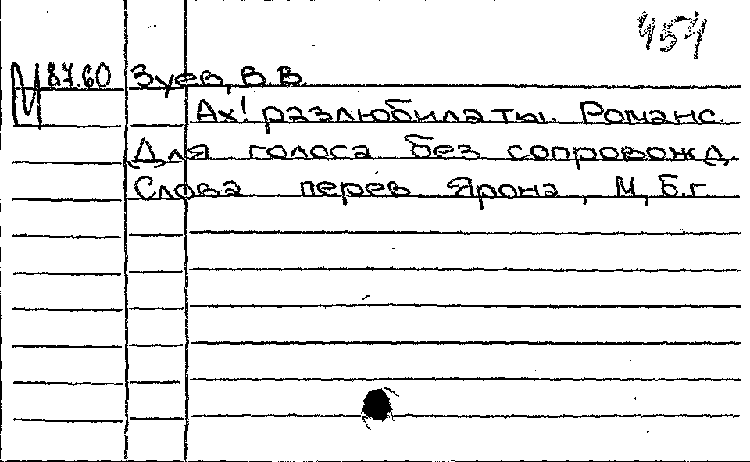 454
М 87.60 Зуев, В.В.
Ах! разлюбила ты. Романс.
Для голоса без сопровожд.
Слова перев Ярона, М, Б.г.